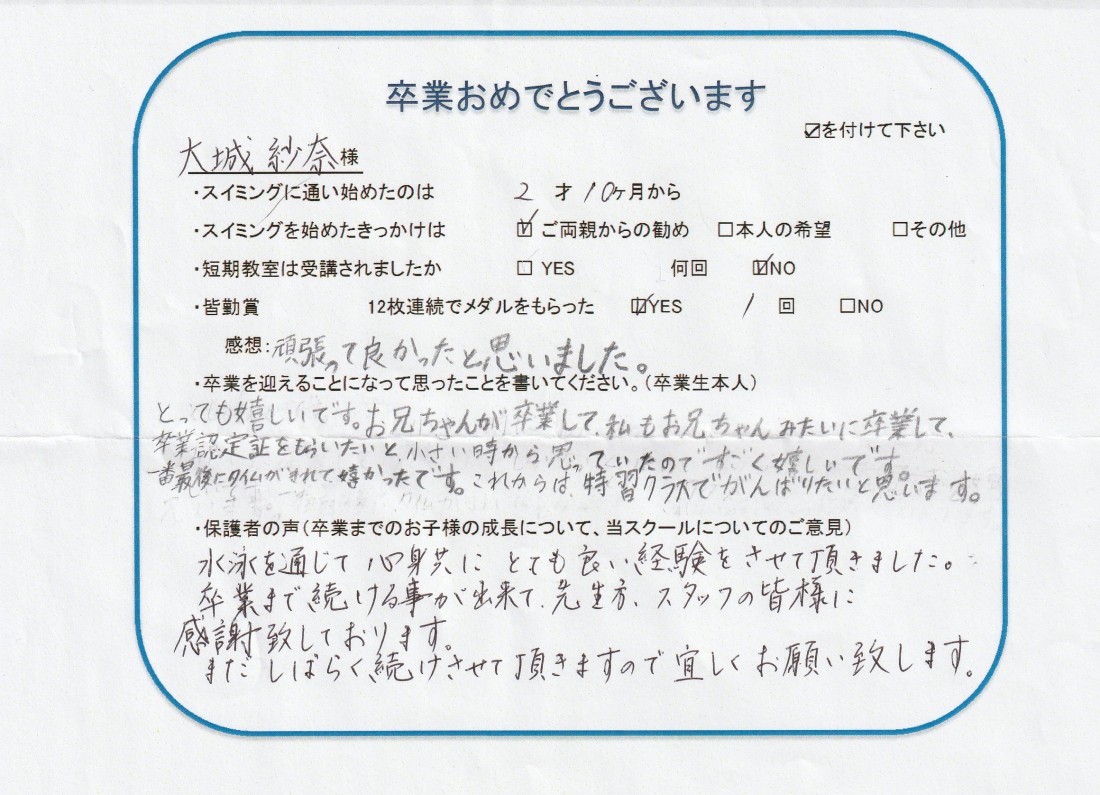 卒業おめでとうございます
☑を付けて下さい
大城 紗奈 様
・スイミングに通い始めたのは 2 才 10ヶ月から
・スイミングを始めたきっかけは ☑ ご両親からの勧め □本人の希望 □その他
・短期教室は受講されましたか □ YES 何回 ☑NO
・皆勤賞 12枚連続でメダルをもらった ☑YES 1 回 □NO
感想:頑張って良かったと思いました。
・卒業を迎えることになって思ったことを書いてください。(卒業生本人)
とっても嬉しいです。お兄ちゃんが卒業して、私もお兄ちゃんみたいに卒業して、
卒業認定証をもらいたいと、小さい時から思っていたのですごく嬉しいです。
一番最後にタイムがきれて嬉かったです。これからは、特習クラスでがんばりたいと思います。
・保護者の声(卒業までのお子様の成長について、当スクールについてのご意見)
水泳を通じて心身共にとても良い経験をさせて頂きました。
卒業まで続ける事が出来て、先生方、スタッフの皆様に
感謝致しております。
まだしばらく続けさせて頂きますので宜しくお願い致します。